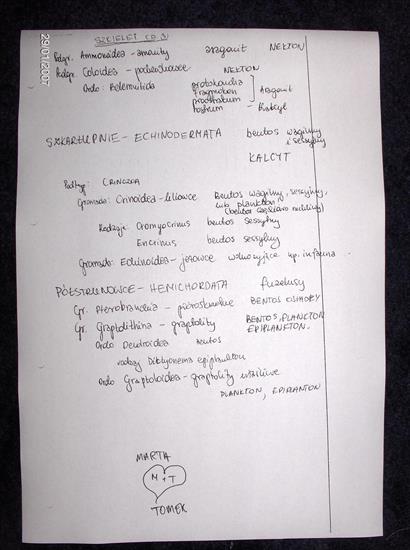 29/01/2007
SZKIELET CD. 3)
Podgr. Ammonoidea - amonity aragonit NEKTON
Podgr. Coloidea - pochewkowce NEKTON
Ordo: Belemnitida protokoncha
fragmokon Aragonit
proostrakum
rostrum - Kalcyt
SZKARŁUPNIE - ECHINODERMATA bentos wagilny
i sesylny
KALCYT
Podtyp: CRINOZOA
Gromada: Crinoidea - liliowce Bentos wagilny, sessylny,
lub plankton
Rodzaje: Cromyocrinus bentos sessylny
Encrinus bentos sessylny
Gromada: Echinoidea - jeżowce np. infauna
PÓŁSTRUNOWCE - HEMICHORDATA
Gr. Pterobranchia - pióroskrzelne BENTOS OSIADŁY
Gr. Graptolithina - graptolity BENTOS, PLANKTON
EPIPLANKTON.
Ordo Dendroidea bentos
rodzaj Diktyonema epiplankton
Ordo Graptoloidea - graptolity właściwe
PLANKTON, EPIPLANKTON
MARTA
M + T
TOMEK